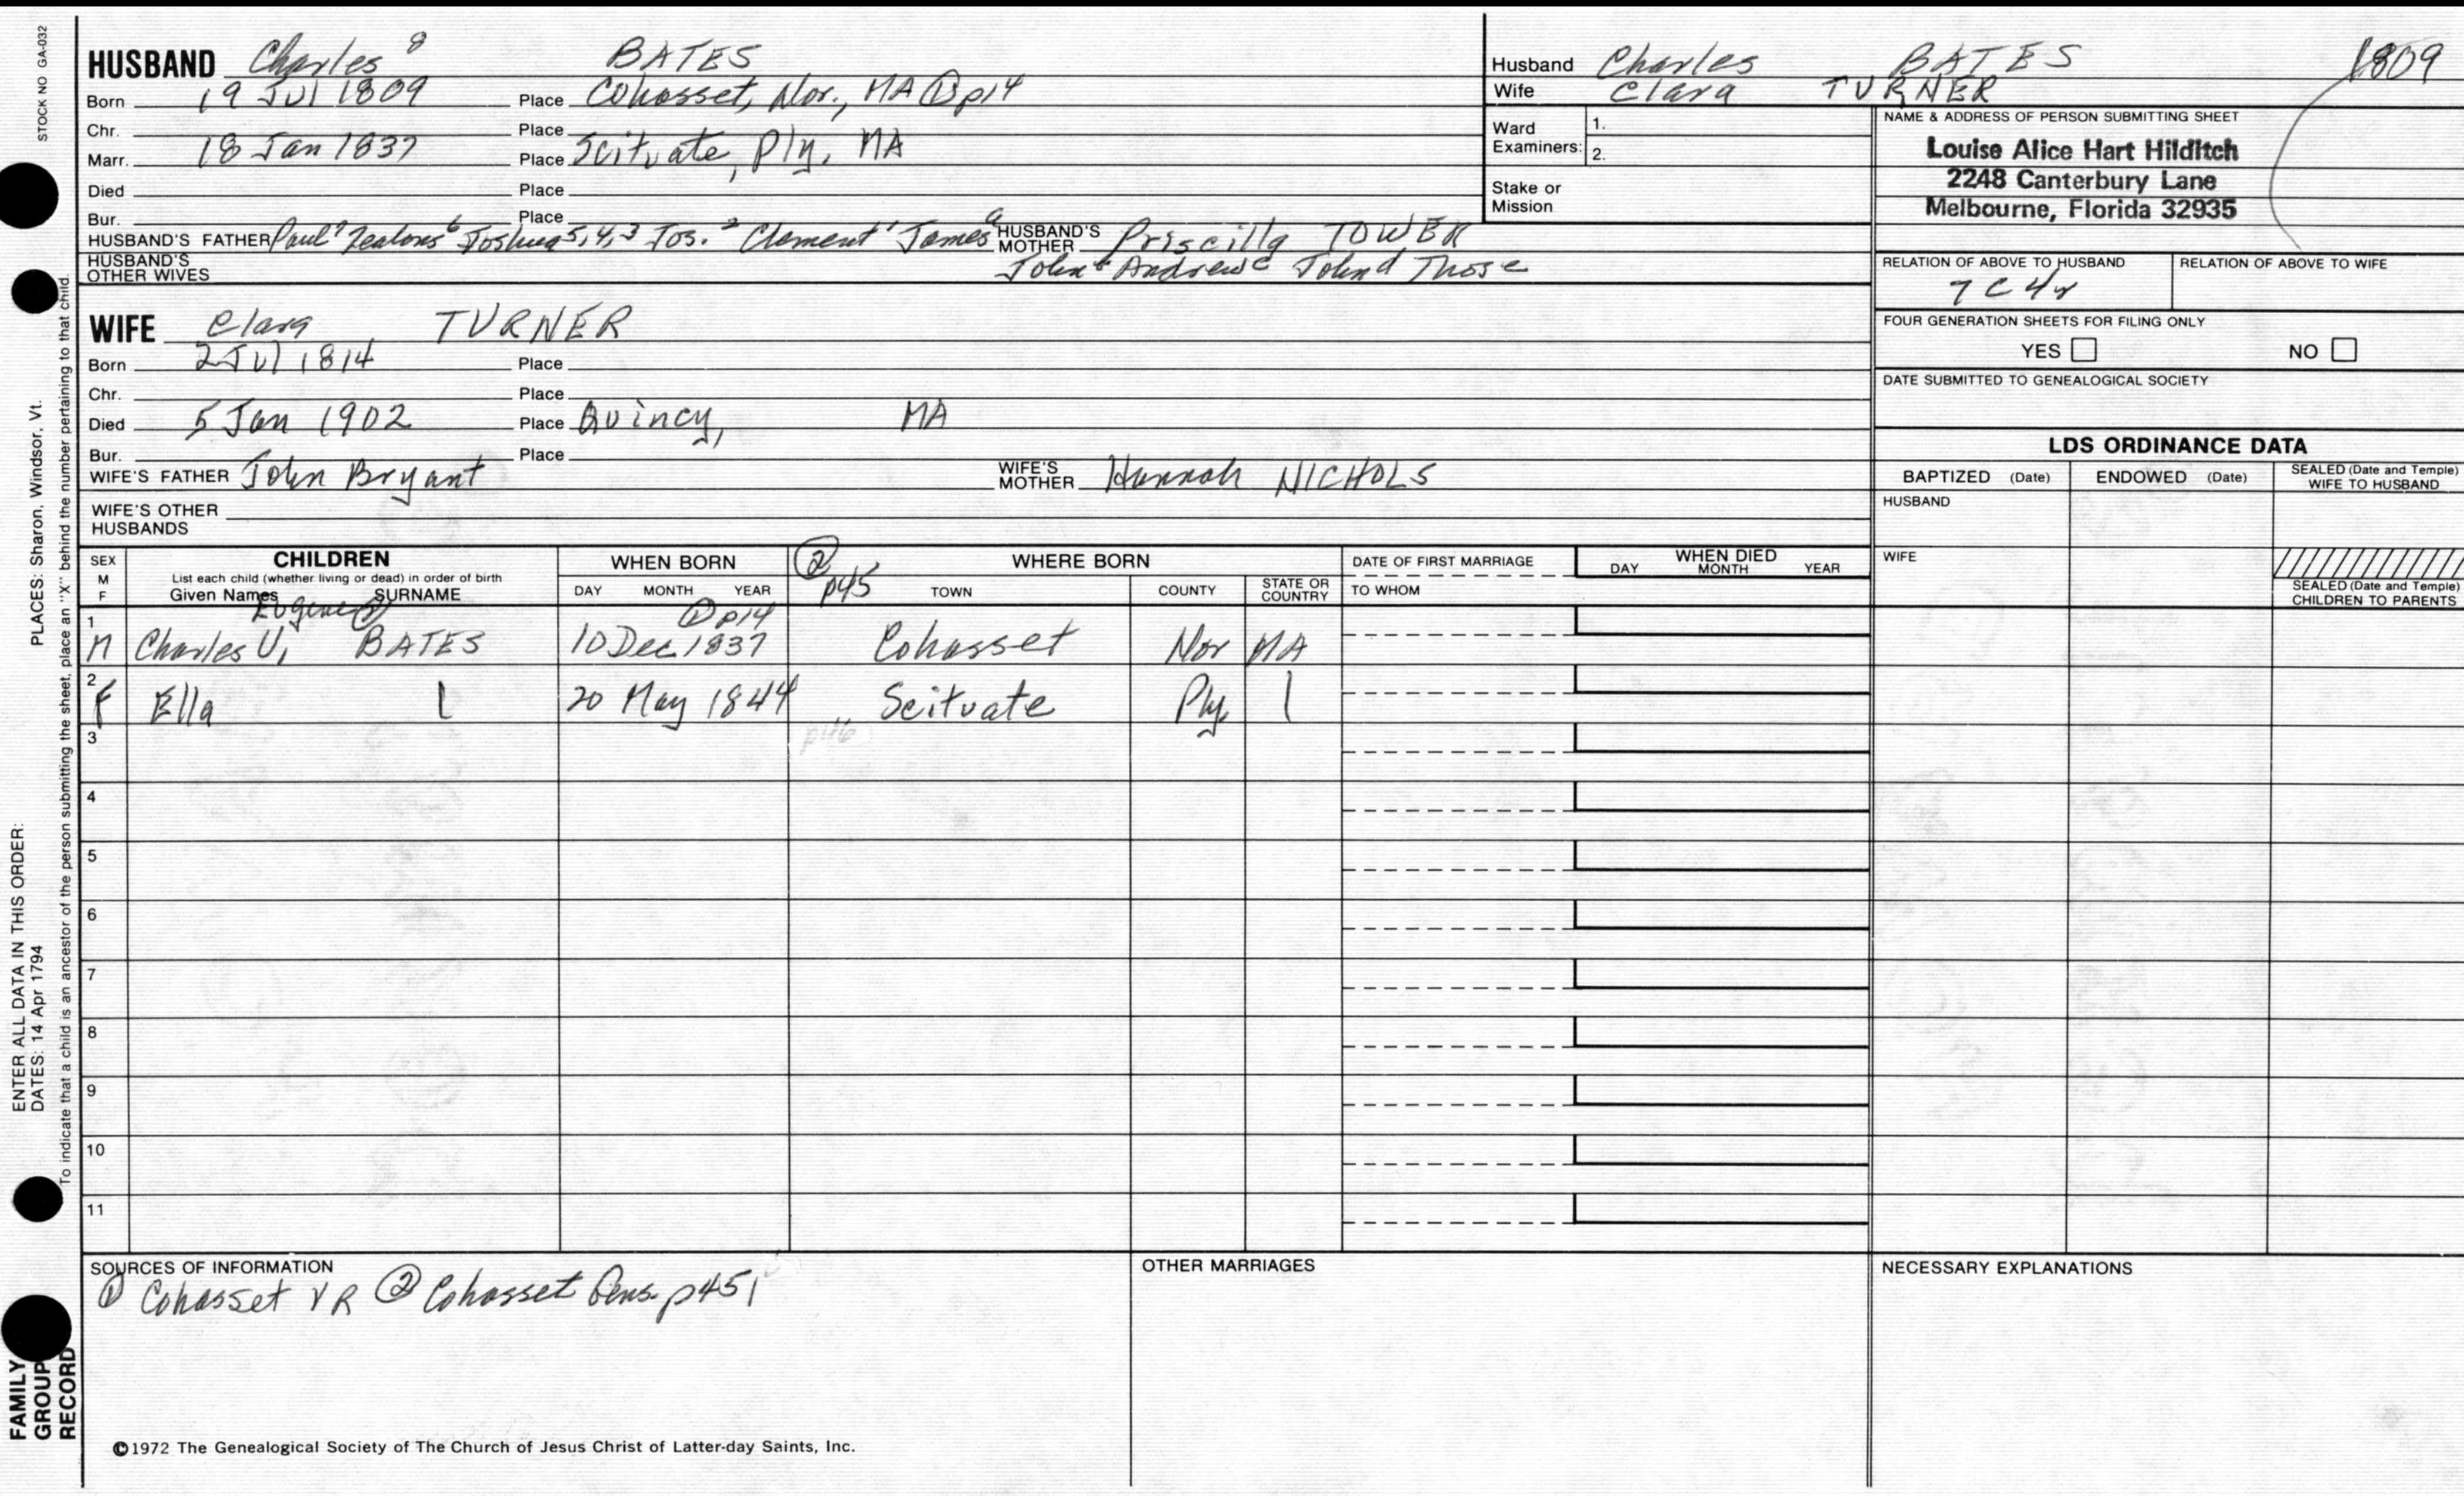 STOCK NO GA-032
HUSBAND Charles 8 BATES
Born 19 Jul 1809 Place Cohasset, Nor., MA ① p14
Chr. Place
Marr. 18 Jan 1837 Place Scituate, Ply, MA
Died Place
Bur. Place
HUSBAND'S FATHER Paul 7 Zealous 6 Joshua 5,4,3 Jos. 2 Clement 1 James a HUSBAND'S MOTHER Priscilla TOWER
HUSBAND'S OTHER WIVES John b Andrew c John d Thos e
Husband Charles BATES 1809
Wife Clara TURNER
Ward Examiners: 1.
2.
Stake or Mission
NAME & ADDRESS OF PERSON SUBMITTING SHEET
Louise Alice Hart Hilditch
2248 Canterbury Lane
Melbourne, Florida 32935
RELATION OF ABOVE TO HUSBAND RELATION OF ABOVE TO WIFE
7C4r
FOUR GENERATION SHEETS FOR FILING ONLY
YES NO
DATE SUBMITTED TO GENEALOGICAL SOCIETY
WIFE Clara TURNER
Born 2 Jul 1814 Place
Chr. Place
Died 5 Jan 1902 Place Quincy, MA
Bur. Place
WIFE'S FATHER John Bryant WIFE'S MOTHER Hannah NICHOLS
WIFE'S OTHER HUSBANDS
LDS ORDINANCE DATA
BAPTIZED (Date) ENDOWED (Date) SEALED (Date and Temple) WIFE TO HUSBAND
HUSBAND
WIFE
SEALED (Date and Temple) CHILDREN TO PARENTS
SEX M F CHILDREN WHEN BORN ② p45 WHERE BORN DATE OF FIRST MARRIAGE WHEN DIED
List each child (whether living or dead) in order of birth
Given Names SURNAME DAY MONTH YEAR TOWN COUNTY STATE OR COUNTRY TO WHOM DAY MONTH YEAR
Eugene ② ① p14
1 M Charles U, BATES 10 Dec 1837 Cohasset Nor MA
2 F Ella | 20 May 1844 Scituate Ply. |
p46
3
4
5
6
7
8
9
10
11
SOURCES OF INFORMATION
① Cohasset VR ② Cohasset Gens. p451
OTHER MARRIAGES
NECESSARY EXPLANATIONS
©1972 The Genealogical Society of The Church of Jesus Christ of Latter-day Saints, Inc.
PLACES: Sharon, Windsor, Vt.
ENTER ALL DATA IN THIS ORDER:
DATES: 14 Apr 1794
To indicate that a child is an ancestor of the person submitting the sheet, place an "X" behind the number pertaining to that child.
FAMILY
GROUP
RECORD